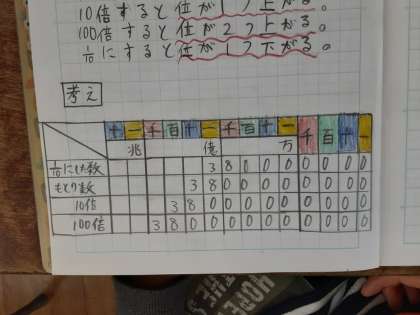 10倍すると位が1つ上がる。
100倍すると位が2つ上がる。
1/10にすると位が1つ下がる。
考え
十 一 千 百 十 一 千 百 十 一 千 百 十 一
兆 億 万
1/10にした数 3 8 0 0 0 0 0 0 0
もとの数 3 8 0 0 0 0 0 0 0 0
10倍 3 8 0 0 0 0 0 0 0 0 0
100倍 3 8 0 0 0 0 0 0 0 0 0 0